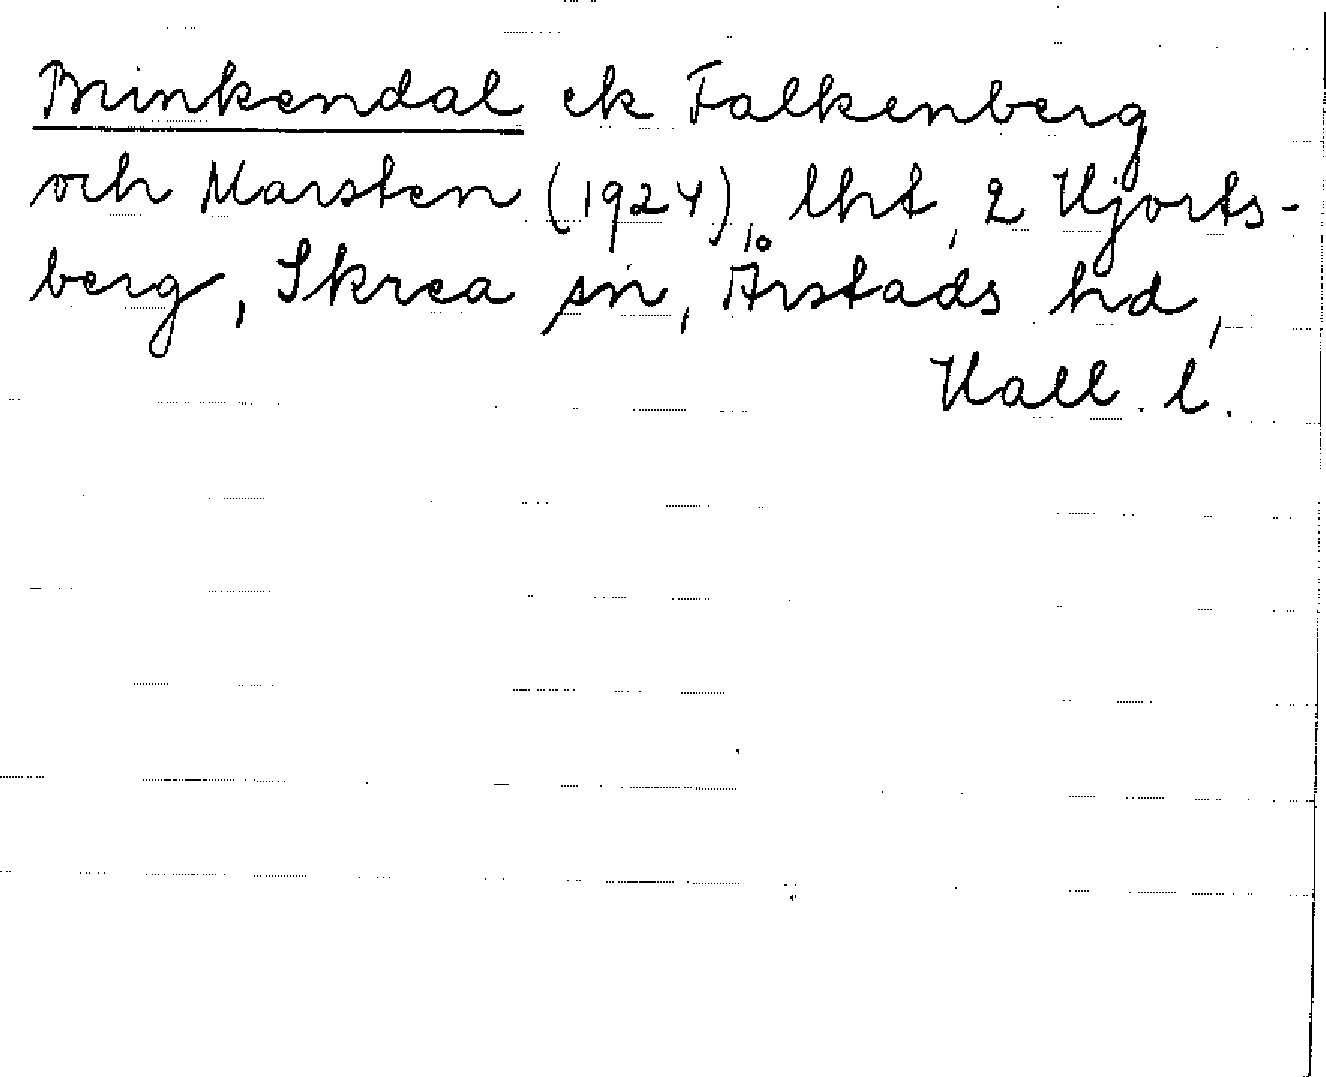 Brinkendal ek Falkenberg
och Marsten (1924), lht, 2 Hjorts-
berg, Skrea sn, Årstads hd,
Hall. l.